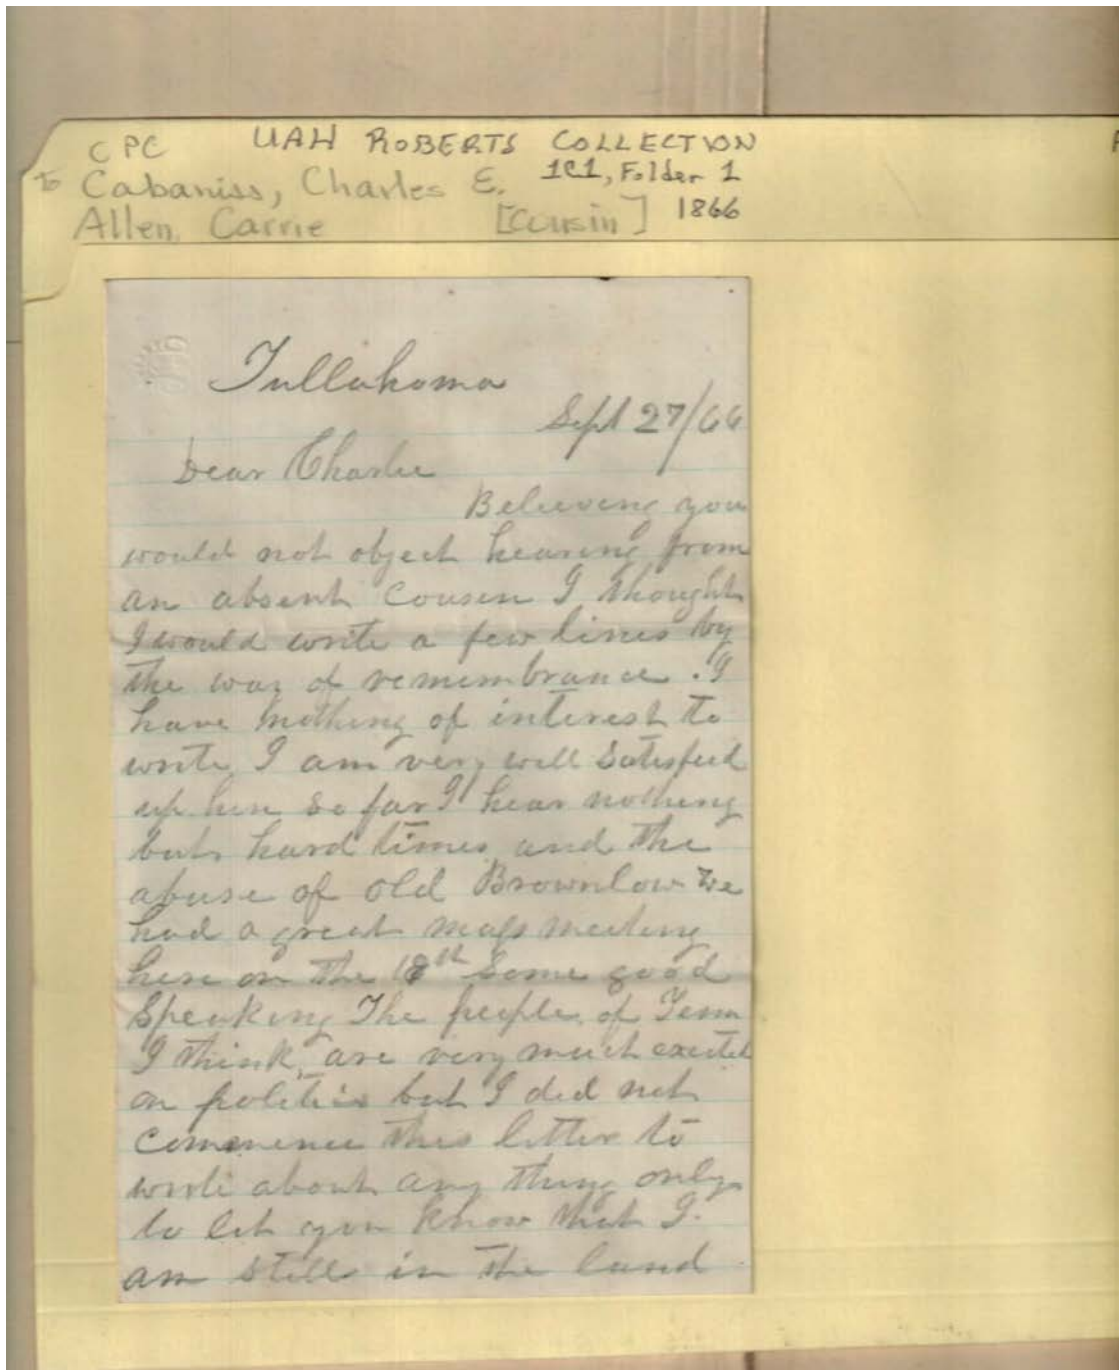 CPC UAH ROBERTS COLLECTION
to Cabaniss, Charles E. 1C1, Folder 1
Allen, Carrie [Cousin] 1866
Tullahoma
Sept 27/66
Dear Charlie
Believing you
would not object hearing from
an absent Cousin I thought
I would write a few lines by
the way of remembrance. I
have nothing of interest to
write I am very well satisfied
up here so far I hear nothing
but hard times and the
abuse of old Brownlow We
had a great mass meeting
here on the 18th Some good
Speaking The people of Tenn
I think, are very much excited
on politics but I did not
commence this letter to
write about any thing only
to let you know that I
am still in the land